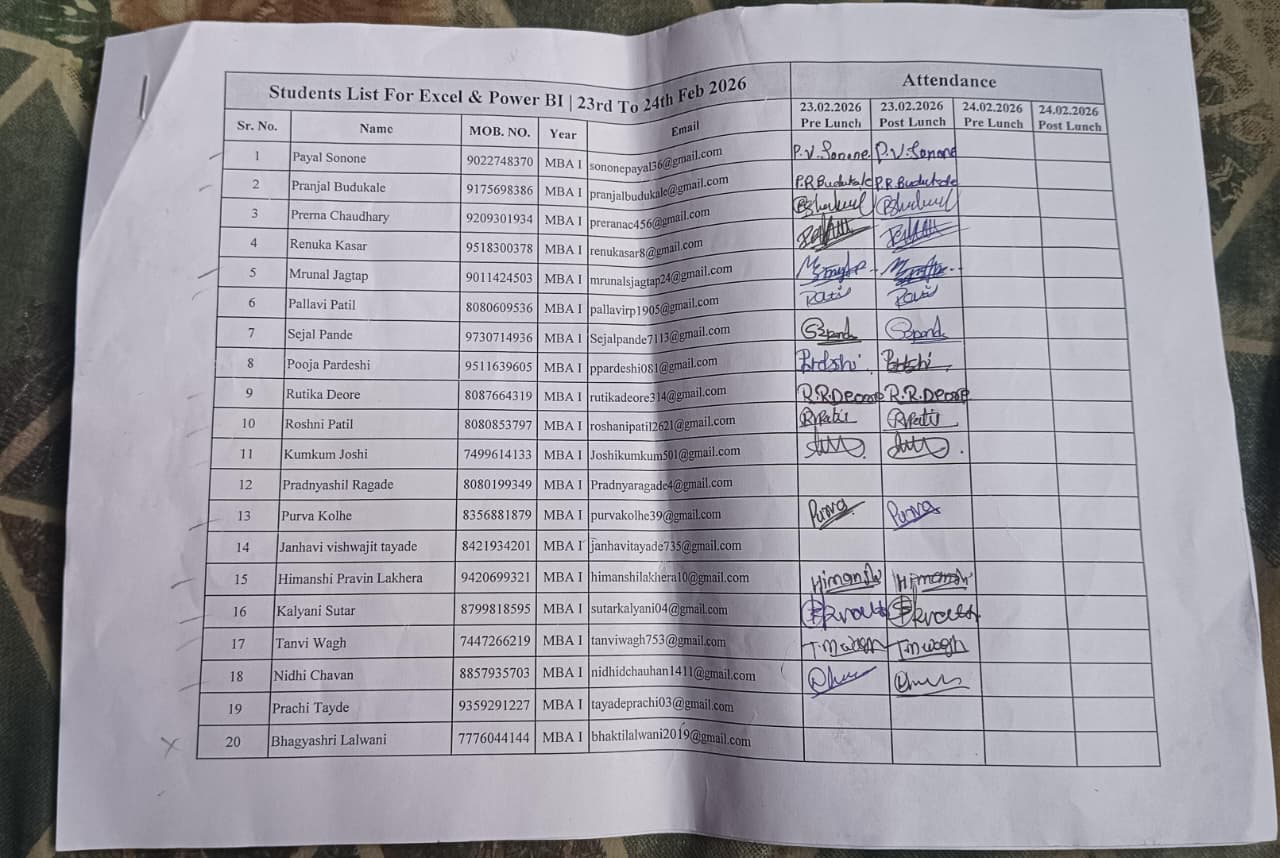 Students List For Excel & Power BI | 23rd To 24th Feb 2026 Attendance
Sr. No. Name MOB. NO. Year Email 23.02.2026 Pre Lunch 23.02.2026 Post Lunch 24.02.2026 Pre Lunch 24.02.2026 Post Lunch
1 Payal Sonone 9022748370 MBA I sononepayal36@gmail.com P.V.Sonone P.V.Sonone
2 Pranjal Budukale 9175698386 MBA I pranjalbudukale@gmail.com P.R.Budukale P.R.Budukale
3 Prerna Chaudhary 9209301934 MBA I preranac456@gmail.com
4 Renuka Kasar 9518300378 MBA I renukasar8@gmail.com
5 Mrunal Jagtap 9011424503 MBA I mrunalsjagtap24@gmail.com
6 Pallavi Patil 8080609536 MBA I pallavirp1905@gmail.com Patil Patil
7 Sejal Pande 9730714936 MBA I Sejalpande7113@gmail.com
8 Pooja Pardeshi 9511639605 MBA I ppardeshi081@gmail.com
9 Rutika Deore 8087664319 MBA I rutikadeore314@gmail.com R.R.Deore R.R.Deore
10 Roshni Patil 8080853797 MBA I roshanipatil2621@gmail.com RPatil RPatil
11 Kumkum Joshi 7499614133 MBA I Joshikumkum501@gmail.com
12 Pradnyashil Ragade 8080199349 MBA I Pradnyaragade4@gmail.com
13 Purva Kolhe 8356881879 MBA I purvakolhe39@gmail.com Purva Purva
14 Janhavi vishwajit tayade 8421934201 MBA I janhavitayade735@gmail.com
15 Himanshi Pravin Lakhera 9420699321 MBA I himanshilakhera10@gmail.com Himanshi Himanshi
16 Kalyani Sutar 8799818595 MBA I sutarkalyani04@gmail.com
17 Tanvi Wagh 7447266219 MBA I tanviwagh753@gmail.com T.M.Wagh T.M.Wagh
18 Nidhi Chavan 8857935703 MBA I nidhidchauhan1411@gmail.com
19 Prachi Tayde 9359291227 MBA I tayadeprachi03@gmail.com
20 Bhagyashri Lalwani 7776044144 MBA I bhaktilalwani2019@gmail.com